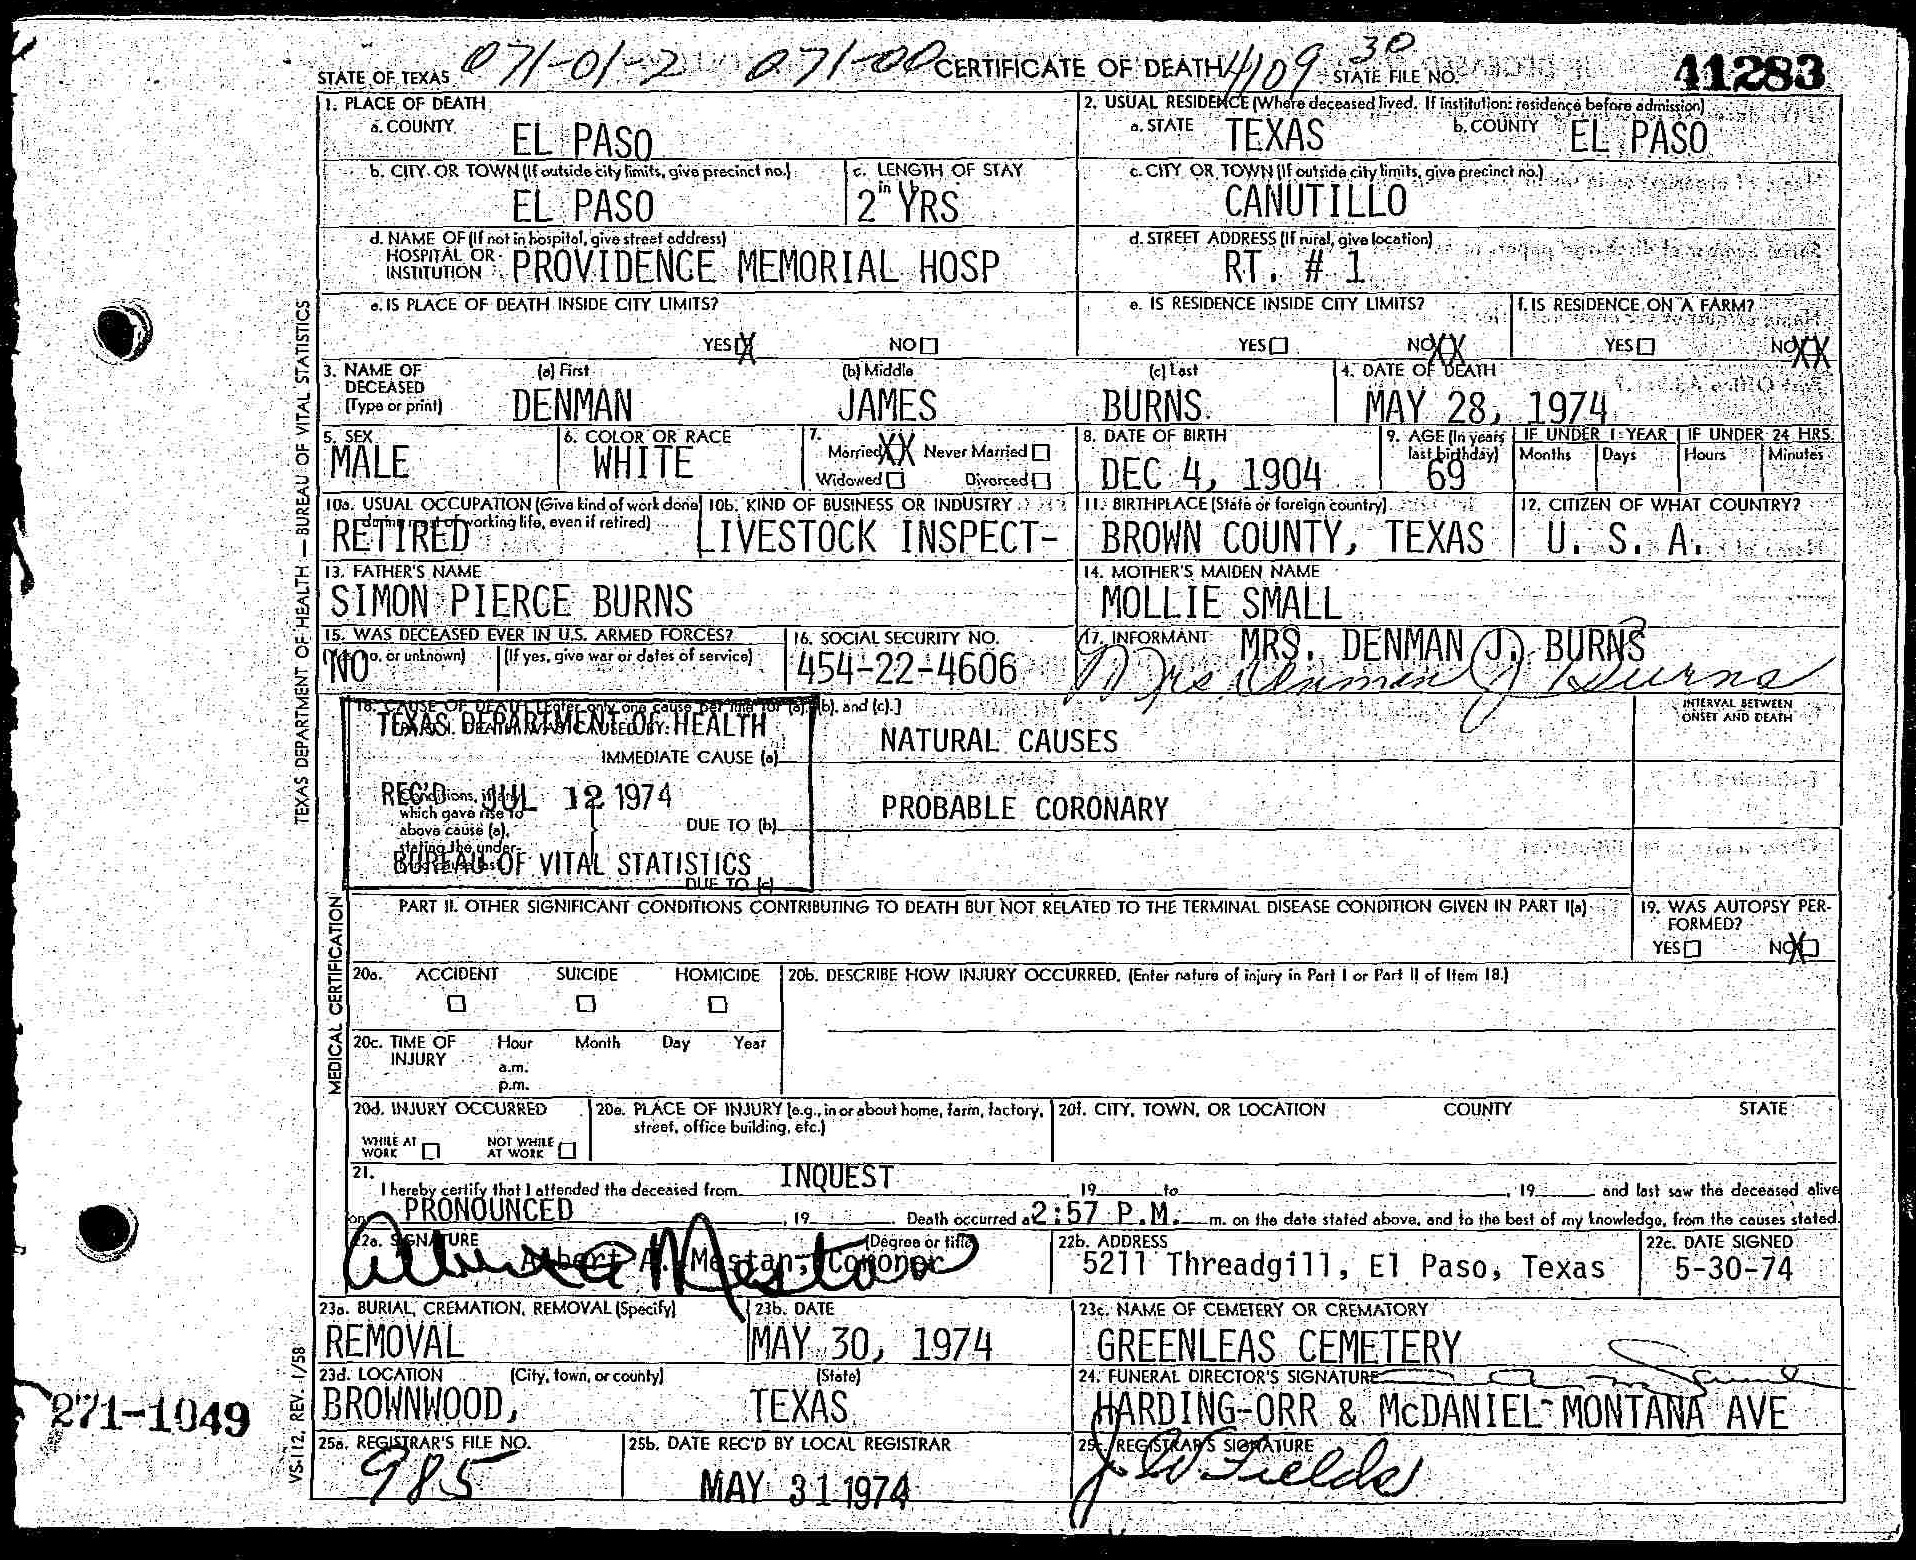 071-01-2 071-00 4109 30
STATE OF TEXAS CERTIFICATE OF DEATH STATE FILE NO. 41283
1. PLACE OF DEATH
a. COUNTY EL PASO
2. USUAL RESIDENCE (Where deceased lived. If institution: residence before admission)
a. STATE TEXAS b. COUNTY EL PASO
b. CITY OR TOWN (If outside city limits, give precinct no.) EL PASO
c. LENGTH OF STAY in 1b 2 YRS
c. CITY OR TOWN (If outside city limits, give precinct no.) CANUTILLO
d. NAME OF (If not in hospital, give street address)
HOSPITAL OR
INSTITUTION PROVIDENCE MEMORIAL HOSP
d. STREET ADDRESS (If rural, give location)
RT. # 1
e. IS PLACE OF DEATH INSIDE CITY LIMITS?
YES X NO
e. IS RESIDENCE INSIDE CITY LIMITS?
YES NO XX
f. IS RESIDENCE ON A FARM?
YES NO XX
3. NAME OF DECEASED (Type or print)
(a) First DENMAN
(b) Middle JAMES
(c) Last BURNS.
4. DATE OF DEATH
MAY 28, 1974
5. SEX
MALE
6. COLOR OR RACE
WHITE
7.
Married XX Never Married
Widowed Divorced
8. DATE OF BIRTH
DEC 4, 1904
9. AGE (In years last birthday)
69
IF UNDER 1 YEAR
Months Days
IF UNDER 24 HRS.
Hours Minutes
10a. USUAL OCCUPATION (Give kind of work done during most of working life, even if retired)
RETIRED
10b. KIND OF BUSINESS OR INDUSTRY
LIVESTOCK INSPECT-
11. BIRTHPLACE (State or foreign country)
BROWN COUNTY, TEXAS
12. CITIZEN OF WHAT COUNTRY?
U. S. A.
13. FATHER'S NAME
SIMON PIERCE BURNS
14. MOTHER'S MAIDEN NAME
MOLLIE SMALL
15. WAS DECEASED EVER IN U.S. ARMED FORCES?
NO (If yes, give war or dates of service)
16. SOCIAL SECURITY NO.
454-22-4606
17. INFORMANT MRS. DENMAN J. BURNS
Mrs. Denman J Burns
18. CAUSE OF DEATH [Enter only one cause per line for (a), (b), and (c).]
INTERVAL BETWEEN ONSET AND DEATH
TEXAS DEPARTMENT OF HEALTH
REC'D JUL 12 1974
BUREAU OF VITAL STATISTICS
PART I. DEATH WAS CAUSED BY:
IMMEDIATE CAUSE (a) NATURAL CAUSES
Conditions, if any, which gave rise to above cause (a), stating the under-lying cause last.
DUE TO (b) PROBABLE CORONARY
DUE TO (c)
PART II. OTHER SIGNIFICANT CONDITIONS CONTRIBUTING TO DEATH BUT NOT RELATED TO THE TERMINAL DISEASE CONDITION GIVEN IN PART I(a)
19. WAS AUTOPSY PER-
FORMED?
YES NO X
20a. ACCIDENT SUICIDE HOMICIDE
20b. DESCRIBE HOW INJURY OCCURRED. (Enter nature of injury in Part I or Part II of Item 18.)
20c. TIME OF INJURY Hour Month Day Year
a.m.
p.m.
20d. INJURY OCCURRED
WHILE AT WORK NOT WHILE AT WORK
20e. PLACE OF INJURY (e.g., in or about home, farm, factory, street, office building, etc.)
20f. CITY, TOWN, OR LOCATION COUNTY STATE
21.
I hereby certify that I attended the deceased from INQUEST , 19 to , 19 and last saw the deceased alive
on PRONOUNCED , 19 Death occurred at 2:57 P.M. m. on the date stated above, and to the best of my knowledge, from the causes stated.
22a. SIGNATURE (Degree or title)
Albert A. Mestan, Coroner
22b. ADDRESS
5211 Threadgill, El Paso, Texas
22c. DATE SIGNED
5-30-74
23a. BURIAL, CREMATION, REMOVAL (Specify)
REMOVAL
23b. DATE
MAY 30, 1974
23c. NAME OF CEMETERY OR CREMATORY
GREENLEAS CEMETERY
23d. LOCATION (City, town, or county) (State)
BROWNWOOD, TEXAS
24. FUNERAL DIRECTOR'S SIGNATURE
HARDING-ORR & McDANIEL-MONTANA AVE
25a. REGISTRAR'S FILE NO.
985
25b. DATE REC'D BY LOCAL REGISTRAR
MAY 31 1974
25c. REGISTRAR'S SIGNATURE
J. W. Fields
TEXAS DEPARTMENT OF HEALTH — BUREAU OF VITAL STATISTICS
MEDICAL CERTIFICATION
VS-112, REV. 1/58
271-1049